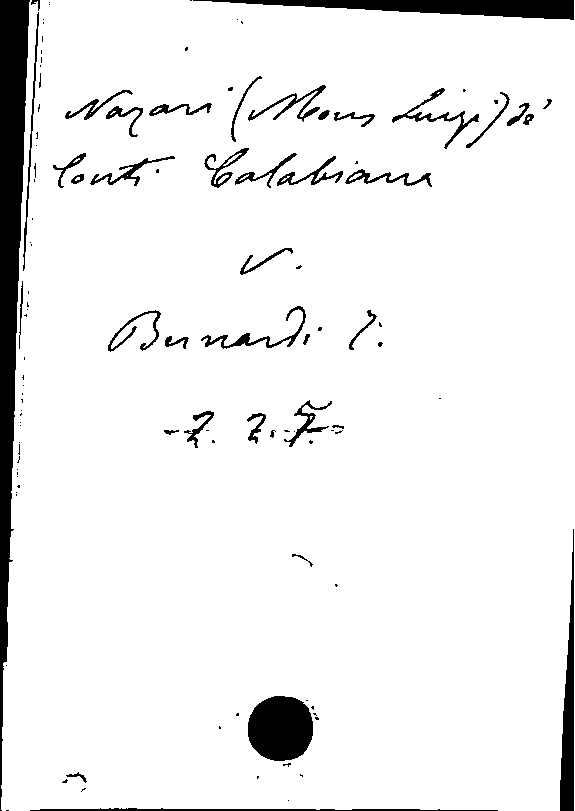 Nazari (Mons Luigi) de'
Conti Calabiana
V.
Bernardi J.
Z. Z. 7.